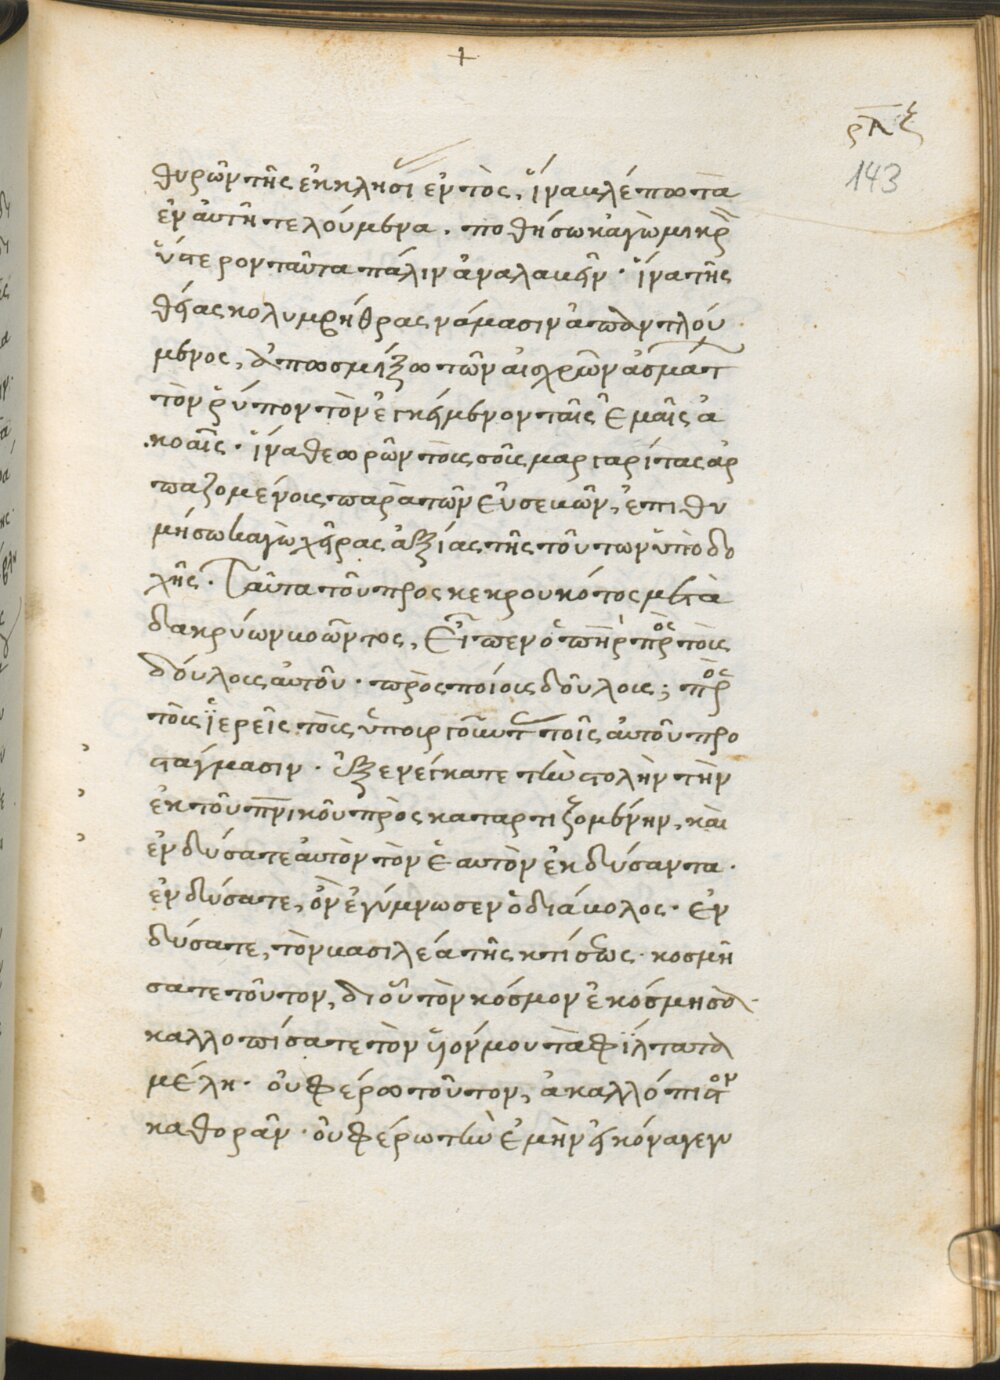 +
ρπζ
143
θυρῶν τῆς ἐκκλησί ἐντὸς, ἵνα βλέπω τὰ
ἐν αὐτῆ τελούμενα. ποθήσω κἀγὼ μικρ
ὕστερον ταῦτα πάλιν ἀναλαβεῖν· ἵνα τῆς
θείας κολυμβήθρας νάμασιν ἀπαντλού
μενος, ἀποσμήξω τῶν αἰσχρῶν ἀσμάτ
τὸν ῥύπον τὸν ἐγκείμενον ταῖς ἐμαῖς ἀ
κοαῖς· ἵνα θεωρῶν τοὺς σοὺς μαργαρίτας ἁρ
παζομένους παρὰ τῶν εὐσεβῶν, ἐπιθυ
μήσω καγὼ χεῖρας ἀξίας τῆς τούτων ὑποδο
χῆς· Ταῦτα τοῦ προσκεκρουκότος μετὰ
δακρύων βοῶντος, Εἶπεν ὁ πηρ προς τοὺς
δούλους αὐτοῦ· πρὸς ποίους δούλους; προς
τοὺς ἱερεῖς τοὺς ὑπουργοῦντ τοῖς αὐτοῦ προ
στάγμασιν· ἐξενέγκατε τὴν στολὴν τὴν
ἐκ τοῦ πνικοῦ πρὸς καταρτιζομένην, καὶ
ἐνδύσατε αὐτὸν τὸν ἑαυτὸν ἐκδύσαντα·
ἐνδύσατε, ὃν ἐγύμνωσεν ὁ διάβολος· ἐν
δύσατε, τὸν βασιλέα τῆς κτίσεως· κοσμή
σατε τοῦτον, δι οὗ τὸν κόσμον ἐκόσμησα·
καλλοπίσατε τὸν υἱοῦ μου τὰ φίλτατα
μέλη· οὐ φέρω τοῦτον, ἀκαλλόπιστον
καθορᾶν· οὐ φέρω τὴν ἐμὴν εἰκόνα γεγυ